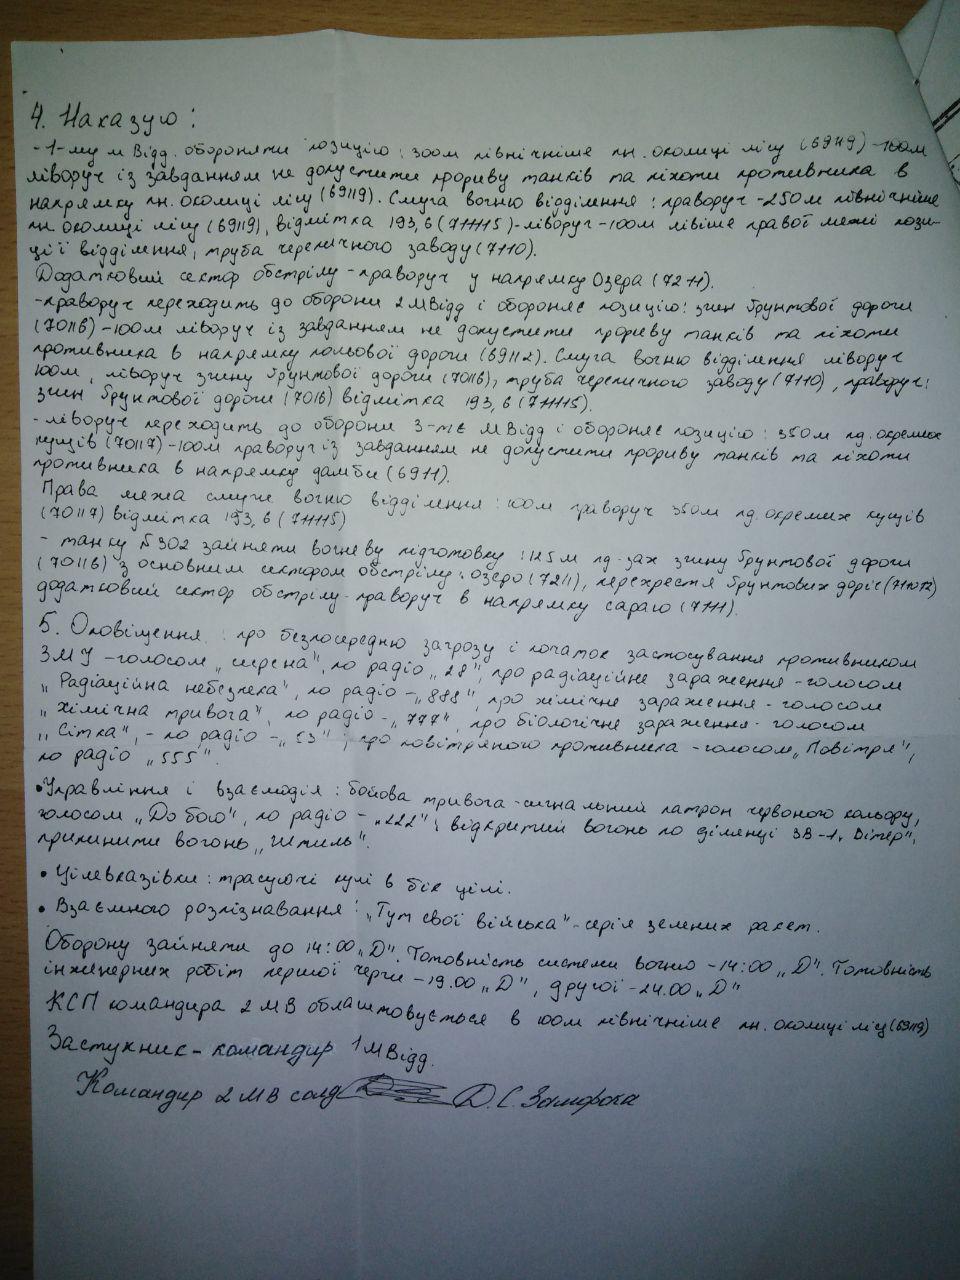 4. Наказую :
-1-му мВідд. обороняти позицію : 300м північніше пн. околиці лісу (69119) -100м
ліворуч із завданням не допустити прориву танків та піхоти противника в
напрямку пн. околиці лісу (69119). Смуга вогню відділення : праворуч -250м північніше
пн. околиці лісу (69119), відмітка 193,6 (71115)-ліворуч -100м лівіше правої межі пози-
ції відділення, труба черепичного заводу (7110).
Додатковий сектор обстрілу -праворуч у напрямку Озера (7211).
-праворуч переходить до оборони 2МВідд і обороняє позицію : згин ґрунтової дороги
(70116) -100м ліворуч із завданням не допустити прориву танків та піхоти
противника в напрямку польової дороги (69112). Смуга вогню відділення ліворуч
100м, ліворуч згину ґрунтової дороги (70116), труба черепичного заводу (7110), праворуч:
згин ґрунтової дороги (7016) відмітка 193,6 (71115).
-ліворуч переходить до оборони 3-тє МВідд і обороняє позицію : 350м пд. окремих
кущів (70117) -100м праворуч із завданням не допустити прориву танків та піхоти
противника в напрямку дамби (6911).
Права межа смуги вогню відділення : 100м праворуч 350м пд. окремих кущів
(70117) відмітка 193,6 (71115)
- танку №302 зайняти вогневу підготовку : 125м пд-зах згину ґрунтової дороги
(70116) з основним сектором обстрілу : озеро (7211), перехрестя ґрунтових доріг
додатковий сектор обстрілу-праворуч в напрямку сараю (7111).
5. Оповіщення : про безпосередню загрозу і початок застосування противником
ЗМУ -голосом „сирена", по радіо „28", про радіаційне зараження -голосом
„Радіаційна небезпека", по радіо -„888", про хімічне зараження - голосом
„Хімічна тривога", по радіо -„777", про біологічне зараження - голосом
„Сітка", - по радіо -„53" ; про повітряного противника -голосом „Повітря",
по радіо „555".
•Управління і взаємодія : бойова тривога -сигнальний патрон червоного кольору,
голосом „До бою", по радіо -„222"; відкритий вогонь по ділянці ЗВ-1„Вітер",
припинити вогонь „Штиль".
• Цілевказівки : трасуючі кулі в бік цілі.
• Взаємного розпізнавання : „Тут свої війська" -серія зелених ракет.
Оборону зайняти до 14:00 „Д". Готовність системи вогню -14:00 „Д". Готовність
інженерних робіт першої черги -19.00 „Д", другої -24.00 „Д"
КСП командира 2 МВ облаштовується в 100м північніше пн. околиці лісу (69119)
Заступник - командир 1 мВідд.
Командир 2 МВ солд Д.С.